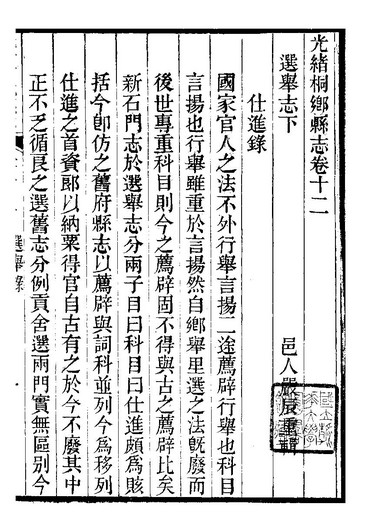 光緒桐鄉縣志卷十二
邑人嚴辰重輯
選舉志下
仕進錄
國家官人之法不外行舉言揚二途薦辟行舉也科目
言揚也行舉雖重於言揚然自鄉舉里選之法旣廢而
後世專重科目則今之薦辟固不得與古之薦辟比矣
新石門志於選舉志分兩子目曰科目曰仕進頗爲賅
括今卽仿之舊府縣志以薦辟與詞科並列今爲移列
仕進之首資郞以納粟得官自古有之於今不廢其中
正不乏循良之選舊志分例貢舍選兩門實無區別今
選舉錄